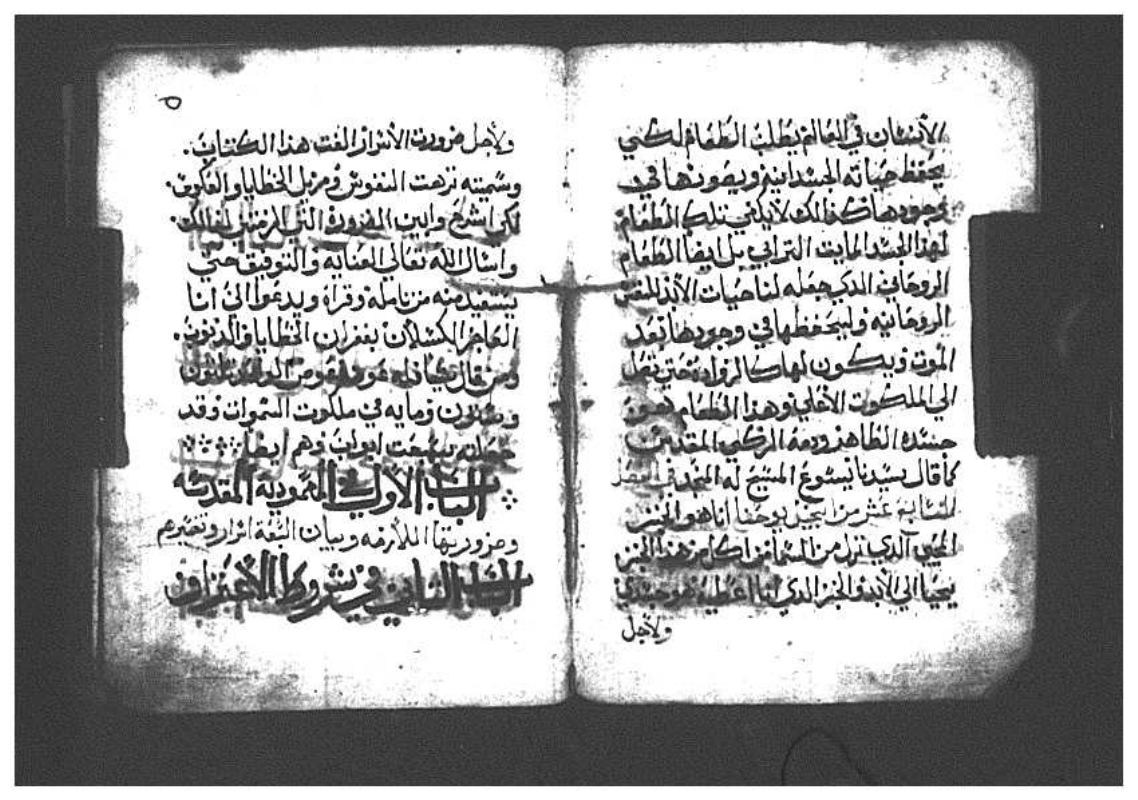 الانسان في العالم يطلب الطعام لكي
يحفظ حياته الجسدانيه ويصونها في
وجودها كذالك لا يكفي تلك الطعام
لهذا الجسد المايت الترابي بل ايضا الطعام
الروحاني الدي جعله لنا حيات الأبد النفس
الروحانيه وليحفظها في وجودها بعد
الموت ويكون لها كالزواده حتى تصل
الي الملكوت الاعلي وهذا الطعام هو
جسده الطاهر ودمه الزكي المقدس
كما قال سيدنا يسوع المسيح له المجد في
عشر من انجيل يوحنا انا هو الخبز
المحيي الذي نزل من السما من اكل من هذا الخبز
يحيا الي الأبد والخبز الدي انا اعطيه هو جسدي
ولاجل
٥
ولاجل ضرورت الأسرار الفت هذا الكتاب.
وسميته نزهت النفوس ومزيل الخطايا والعكوس.
لكي اشرح وابين الضرورة التي لذلك.
واسال الله تعالي العنايه والتوفيق حتي
يستفيد منه من تامله وقراه ويدعوا الي انا
العاجز الكسلان بغفران الخطايا والذنوب.
ومن قال شيا فله عوض الواحد ثلثون
وستون ومايه في ملكوت السموات وقد
جعلته سبعت ابواب وهم ايضا
الباب الأول في المعمودية المقدسه
وضروريتها اللازمه وبيان
الباب الثاني في شروط الأعتراف